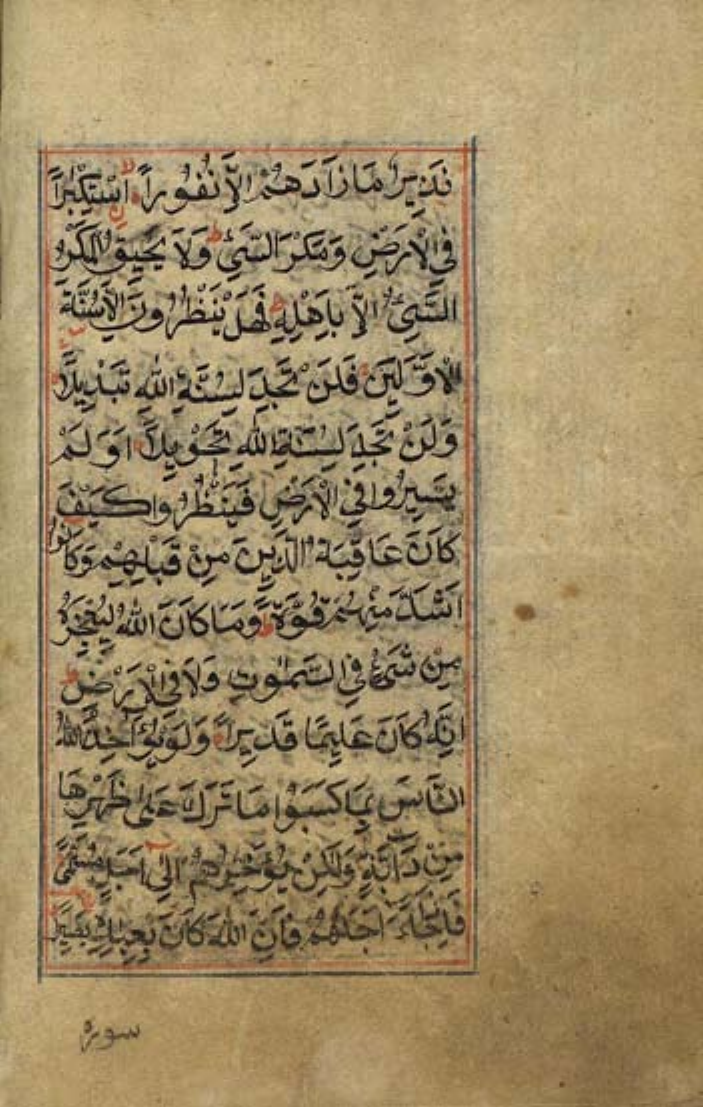 نَذِيرٌ مَا زَادَهُمْ اِلَّا نُفُوراً اسْتِكْبَاراً
فِي الْاَرْضِ وَمَكْرَ السَّيِّئِ وَلَا يَحِيقُ الْمَكْرُ
السَّيِّئُ اِلَّا بِاَهْلِهِ فَهَلْ يَنْظُرُونَ اِلَّا سُنَّةَ
الْاَوَّلِينَ فَلَنْ تَجِدَ لِسُنَّةِ اللهِ تَبْدِيلاً
وَلَنْ تَجِدَ لِسُنَّةِ اللهِ تَحْوِيلاً اَوَلَمْ
يَسِيرُوا فِي الْاَرْضِ فَيَنْظُرُوا كَيْفَ
كَانَ عَاقِبَةُ الَّذِينَ مِنْ قَبْلِهِمْ وَكَانُوا
اَشَدَّ مِنْهُمْ قُوَّةً وَمَا كَانَ اللهُ لِيُعْجِزَهُ
مِنْ شَيْءٍ فِي السَّمٰوٰتِ وَلَا فِي الْاَرْضِ
اِنَّهُ كَانَ عَلِيمًا قَدِيراً وَلَوْ يُؤَاخِذُ اللهُ
النَّاسَ بِمَا كَسَبُوا مَا تَرَكَ عَلٰى ظَهْرِهَا
مِنْ دَابَّةٍ وَلٰكِنْ يُؤَخِّرُهُمْ اِلٰى اَجَلٍ مُسَمًّى
فَاِذَا جَاءَ اَجَلُهُمْ فَاِنَّ اللهَ كَانَ بِعِبَادِهِ بَصِيراً
سورة